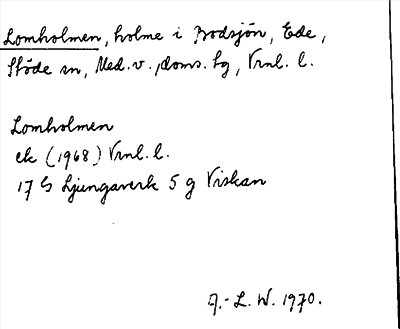 Lomholmen, holme i Bodsjön, Ede,
Stöde sn, Med.v. doms. tg, Vrnl. l.
Lomholmen
ek (1968) Vrnl. l.
17 G Ljungaverk 5 g Viskan
A.-L. W. 1970.